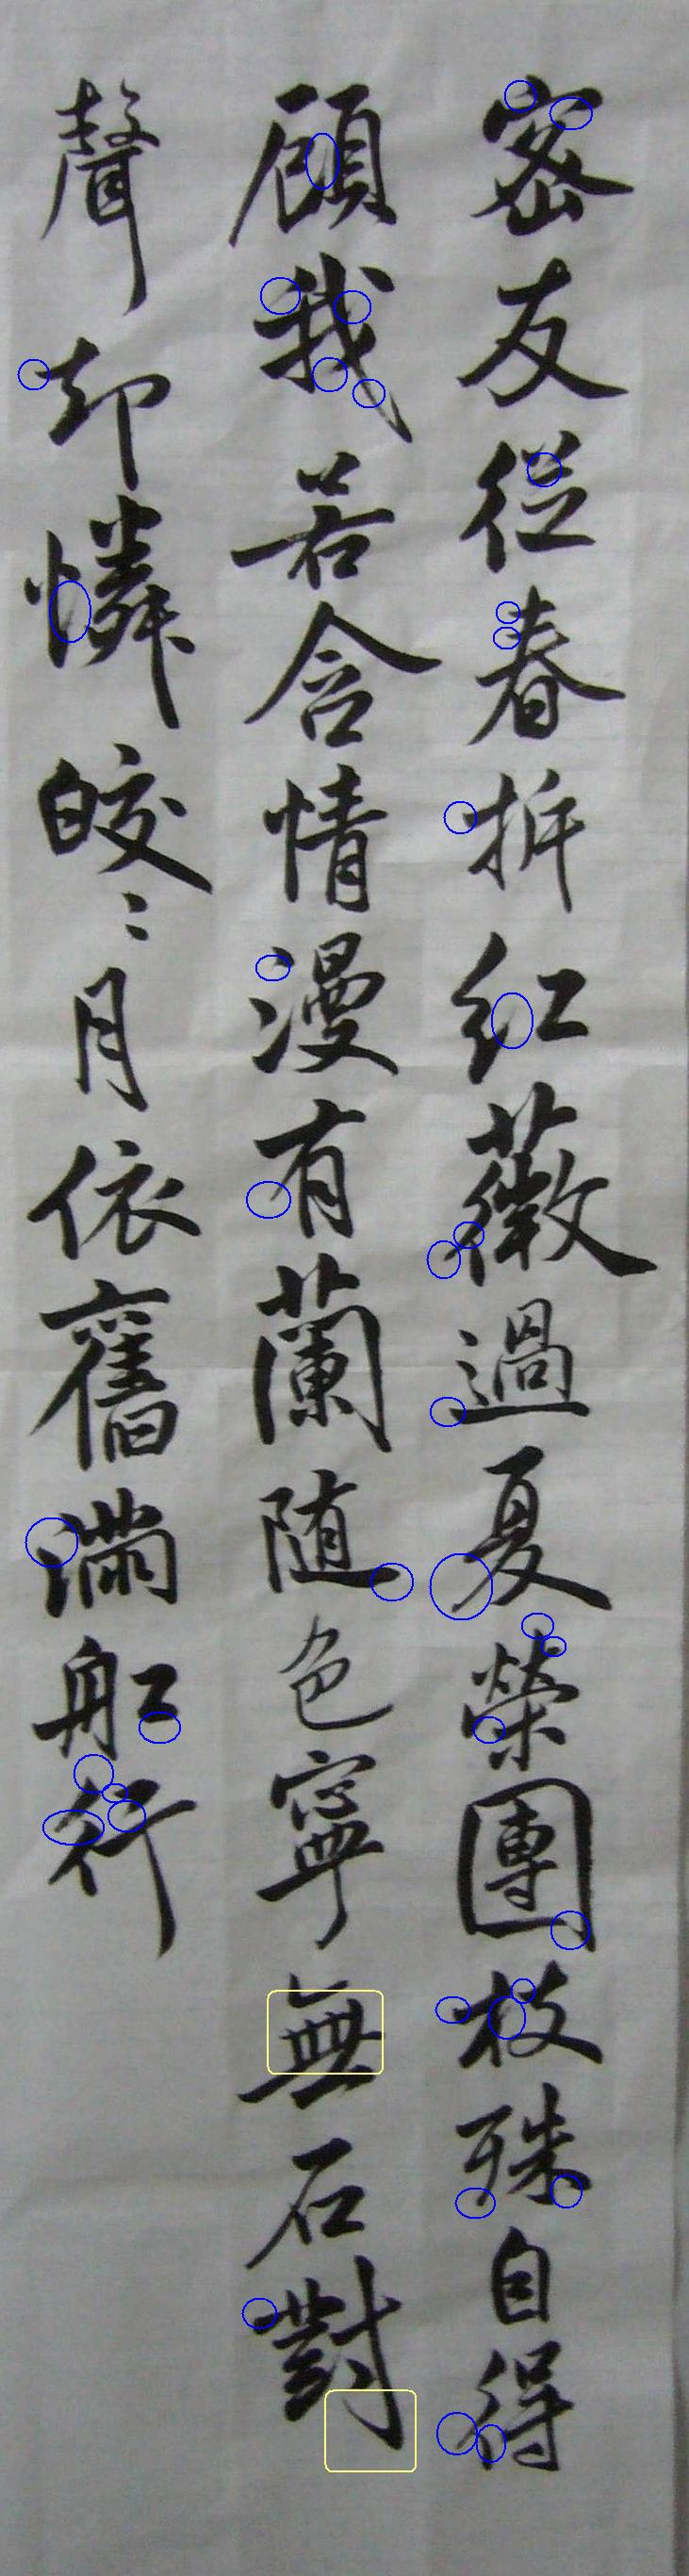 密友從春拆紅薇過夏榮團枝殊自得
顧我若含情漫有蘭随色寧無石對
聲却憐皎〻月依舊滿舡行